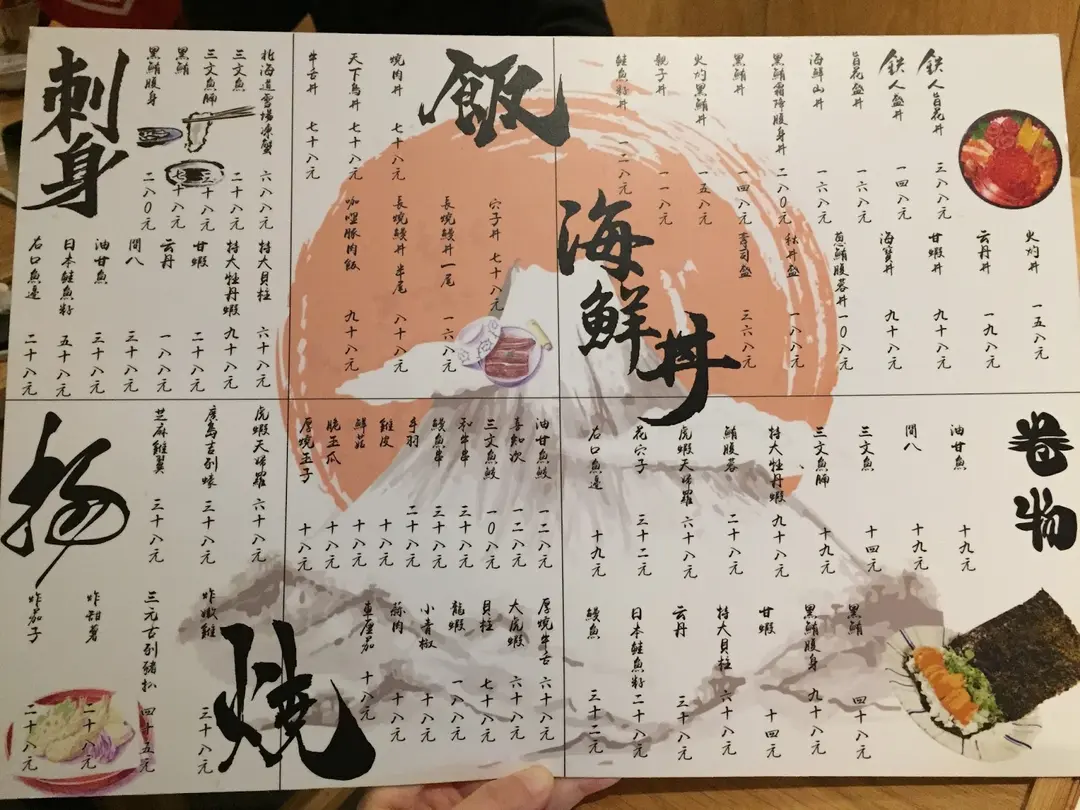 海鮮丼
鉄人旨花丼 三八八元
鉄人盛丼 一四八元
旨花盛丼 一六八元
海鮮山丼 一六八元
黑鮪霜降腹身丼 二八0元
黑鮪丼 一四八元
火灼黑鮪丼 一五八元
親子丼 一一八元
鮭魚籽丼 一二八元
火灼丼 一五八元
云丹丼 一九八元
甘蝦丼 九十八元
海寶丼 九十八元
蔥鮪腹蓉丼 一0八元
秋丼盛 一八八元
壽司盛 三六八元
飯
燒肉丼 七十八元
天下鳥丼 七十八元
牛舌丼 七十八元
穴子丼 七十八元
長燒鰻丼一尾 一六八元
長燒鰻丼半尾 八十八元
咖哩豚肉飯 九十八元
刺身
北海道雪場凍蟹 六八八元
三文魚 二十八元
三文魚腩 三十八元
黑鮪 七十八元
黑鮪腹身 二八0元
特大貝柱 六十八元
特大牡丹蝦 九十八元
甘蝦 二十八元
云丹 一八八元
間八 三十八元
油甘魚 三十八元
日本鮭魚籽 五十八元
右口魚邊 二十八元
卷物
油甘魚 十九元
間八 十九元
三文魚 十四元
三文魚腩 十九元
特大牡丹蝦 九十八元
鮪腹蓉 二十八元
虎蝦天婦羅 六十八元
花穴子 三十二元
右口魚邊 十九元
黑鮪 四十八元
黑鮪腹身 九十八元
甘蝦 十四元
特大貝柱 六十八元
云丹 三十八元
日本鮭魚籽 二十八元
鰻魚 三十二元
燒
油甘魚鮫 一二八元
喜知次 一二八元
三文魚鮫 一0八元
和牛串 三十八元
鰻魚串 三十八元
手羽 二十八元
雞皮 十八元
鮮菇 十八元
脆玉瓜 十八元
厚燒玉子 十八元
厚燒牛舌 六十八元
大虎蝦 六十八元
貝柱 七十八元
龍蝦 一八八元
小青椒 十八元
蒜肉 十八元
車厘茄 十八元
揚
虎蝦天婦羅 六十八元
廣島吉列蠔 三十八元
芝麻雞翼 三十八元
炸嫩雞 三十八元
三元吉列豬扒 四十五元
炸甜薯 二十八元
炸茄子 二十八元